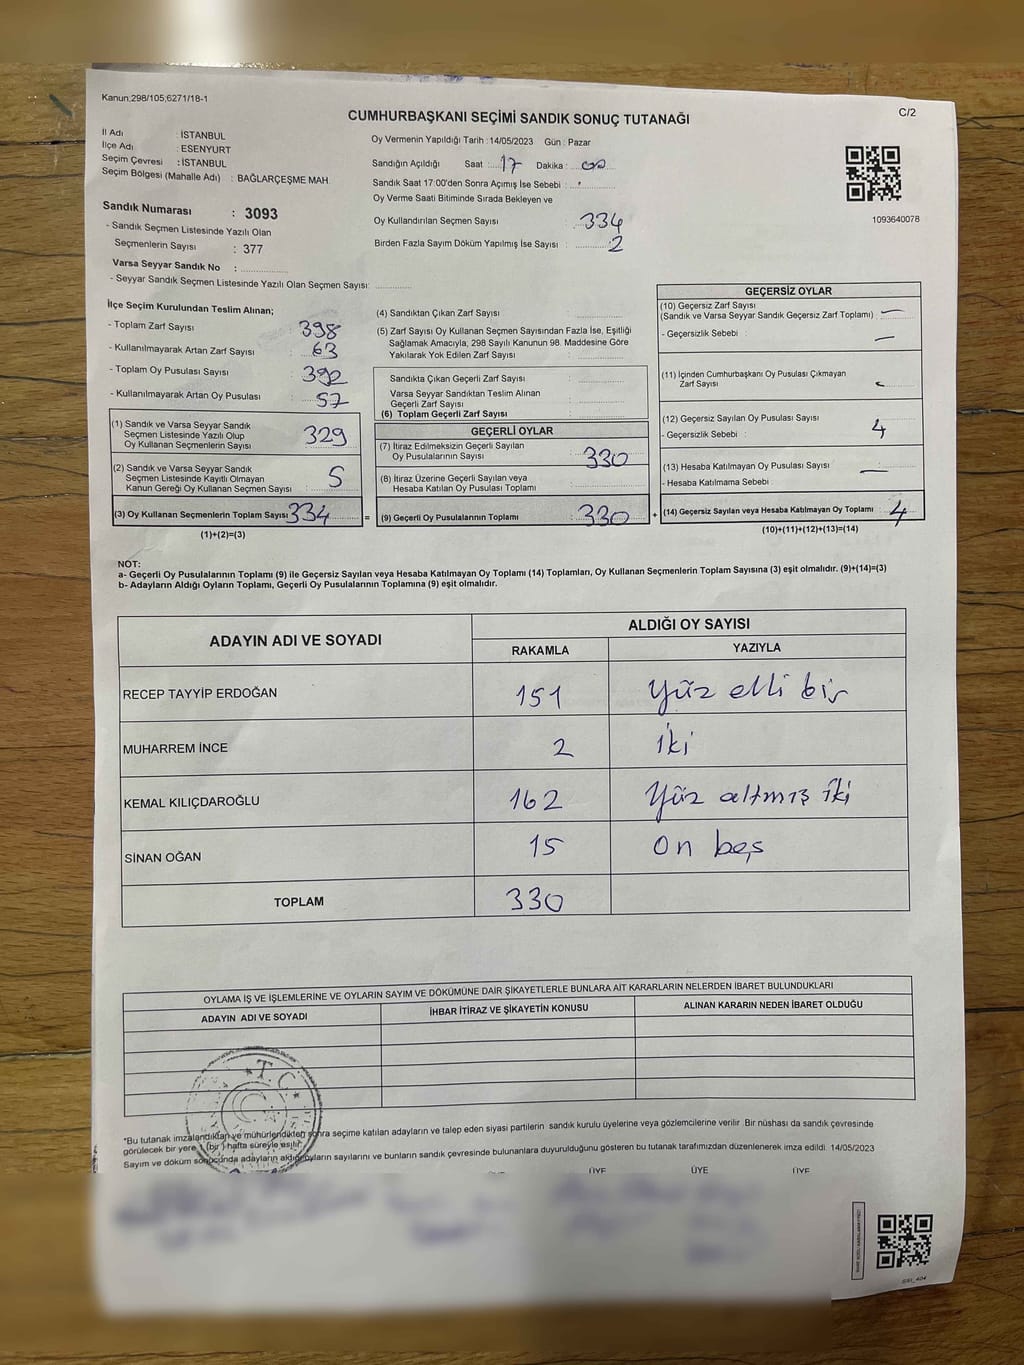 Kanun,298/105,6271/18-1
C/2
CUMHURBAŞKANI SEÇİMİ SANDIK SONUÇ TUTANAĞI
İl Adı : İSTANBUL
İlçe Adı : ESENYURT
Seçim Çevresi : İSTANBUL
Seçim Bölgesi (Mahalle Adı) : BAĞLARÇEŞME MAH.
Sandık Numarası : 3093
- Sandık Seçmen Listesinde Yazılı Olan
Seçmenlerin Sayısı : 377
Varsa Seyyar Sandık No :
- Seyyar Sandık Seçmen Listesinde Yazılı Olan Seçmen Sayısı:
Oy Vermenin Yapıldığı Tarih : 14/05/2023 Gün : Pazar
Sandığın Açıldığı Saat : 17 Dakika : 00
Sandık Saat 17:00'den Sonra Açımış İse Sebebi :
Oy Verme Saati Bitiminde Sırada Bekleyen ve
Oy Kullandırılan Seçmen Sayısı : 334
Birden Fazla Sayım Döküm Yapılmış İse Sayısı : 2
1093640078
İlçe Seçim Kurulundan Teslim Alınan;
- Toplam Zarf Sayısı : 398
- Kullanılmayarak Artan Zarf Sayısı : 63
- Toplam Oy Pusulası Sayısı : 392
- Kullanılmayarak Artan Oy Pusulası : 57
(1) Sandık ve Varsa Seyyar Sandık
Seçmen Listesinde Yazılı Olup
Oy Kullanan Seçmenlerin Sayısı : 329
(2) Sandık ve Varsa Seyyar Sandık
Seçmen Listesinde Kayıtlı Olmayan
Kanun Gereği Oy Kullanan Seçmen Sayısı : 5
(3) Oy Kullanan Seçmenlerin Toplam Sayısı 334
(1)+(2)=(3)
(4) Sandıktan Çıkan Zarf Sayısı :
(5) Zarf Sayısı Oy Kullanan Seçmen Sayısından Fazla İse, Eşitliği
Sağlamak Amacıyla, 298 Sayılı Kanunun 98. Maddesine Göre
Yakılarak Yok Edilen Zarf Sayısı :
Sandıkta Çıkan Geçerli Zarf Sayısı :
Varsa Seyyar Sandıktan Teslim Alınan
Geçerli Zarf Sayısı :
(6) Toplam Geçerli Zarf Sayısı :
GEÇERLİ OYLAR
(7) İtiraz Edilmeksizin Geçerli Sayılan
Oy Pusulalarının Sayısı : 330
(8) İtiraz Üzerine Geçerli Sayılan veya
Hesaba Katılan Oy Pusulası Toplamı :
= (9) Geçerli Oy Pusulalarının Toplamı : 330 +
GEÇERSİZ OYLAR
(10) Geçersiz Zarf Sayısı
(Sandık ve Varsa Seyyar Sandık Geçersiz Zarf Toplamı) : —
- Geçersizlik Sebebi : —
(11) İçinden Cumhurbaşkanı Oy Pusulası Çıkmayan
Zarf Sayısı :
(12) Geçersiz Sayılan Oy Pusulası Sayısı : 4
- Geçersizlik Sebebi :
(13) Hesaba Katılmayan Oy Pusulası Sayısı : —
- Hesaba Katılmama Sebebi :
(14) Geçersiz Sayılan veya Hesaba Katılmayan Oy Toplamı : 4
(10)+(11)+(12)+(13)=(14)
NOT:
a- Geçerli Oy Pusulalarının Toplamı (9) ile Geçersiz Sayılan veya Hesaba Katılmayan Oy Toplamı (14) Toplamları, Oy Kullanan Seçmenlerin Toplam Sayısına (3) eşit olmalıdır. (9)+(14)=(3)
b- Adayların Aldığı Oyların Toplamı, Geçerli Oy Pusulalarının Toplamına (9) eşit olmalıdır.
ADAYIN ADI VE SOYADI
ALDIĞI OY SAYISI
RAKAMLA YAZIYLA
RECEP TAYYİP ERDOĞAN 151 Yüz elli bir
MUHARREM İNCE 2 iki
KEMAL KILIÇDAROĞLU 162 Yüz altmış iki
SİNAN OĞAN 15 On beş
TOPLAM 330
OYLAMA İŞ VE İŞLEMLERİNE VE OYLARIN SAYIM VE DÖKÜMÜNE DAİR ŞİKAYETLERLE BUNLARA AİT KARARLARIN NELERDEN İBARET BULUNDUKLARI
ADAYIN ADI VE SOYADI İHBAR İTİRAZ VE ŞİKAYETİN KONUSU ALINAN KARARIN NEDEN İBARET OLDUĞU
T.C.
"Bu tutanak imzalandıktan ve mühürlendikten sonra seçime katılan adayların ve talep eden siyasi partilerin sandık kurulu üyelerine veya gözlemcilerine verilir .Bir nüshası da sandık çevresinde
görülecek bir yere 1 (bir) hafta süreyle asılır"
Sayım ve döküm sonucunda adayların aldığı oyların sayılarını ve bunların sandık çevresinde bulunanlara duyurulduğunu gösteren bu tutanak tarafımızdan düzenlenerek imza edildi. 14/05/2023
ÜYE ÜYE ÜYE